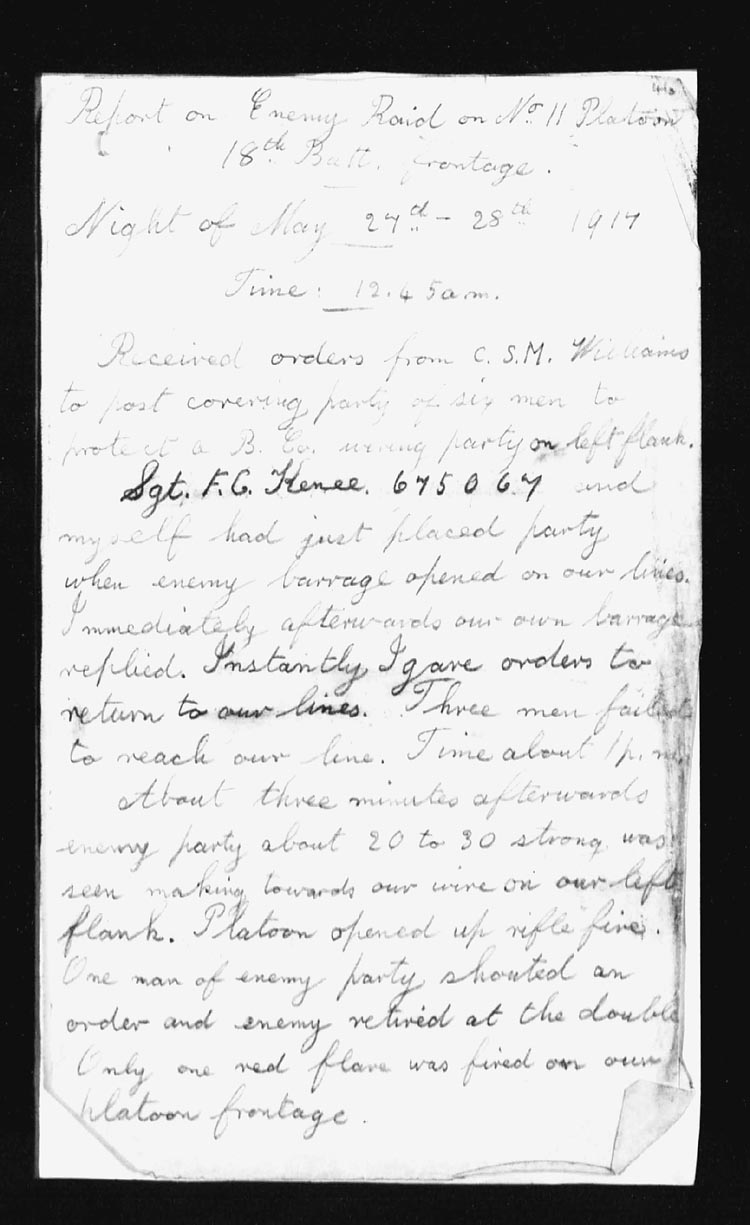 Report on Enemy Raid on No 11 Platoon
18th Batt. frontage.
Night of May 27th - 28th 1917
Time: 12.45 a.m.
Received orders from C.S.M. Williams
to post covering party of six men to
protect a B. Co. wiring party on left flank.
Sgt. F.G. 675067 and
myself had just placed party
when enemy barrage opened on our lines.
Immediately afterwards our own barrage
replied. Instantly I gave orders to
return to our lines. Three men failed
to reach our line. Time about 1 p.m.
About three minutes afterwards
enemy party about 20 to 30 strong was
seen making towards our wire on our left
flank. Platoon opened up rifle fire.
One man of enemy party shouted an
order and enemy retired at the double
Only one red flare was fired on our
platoon frontage.